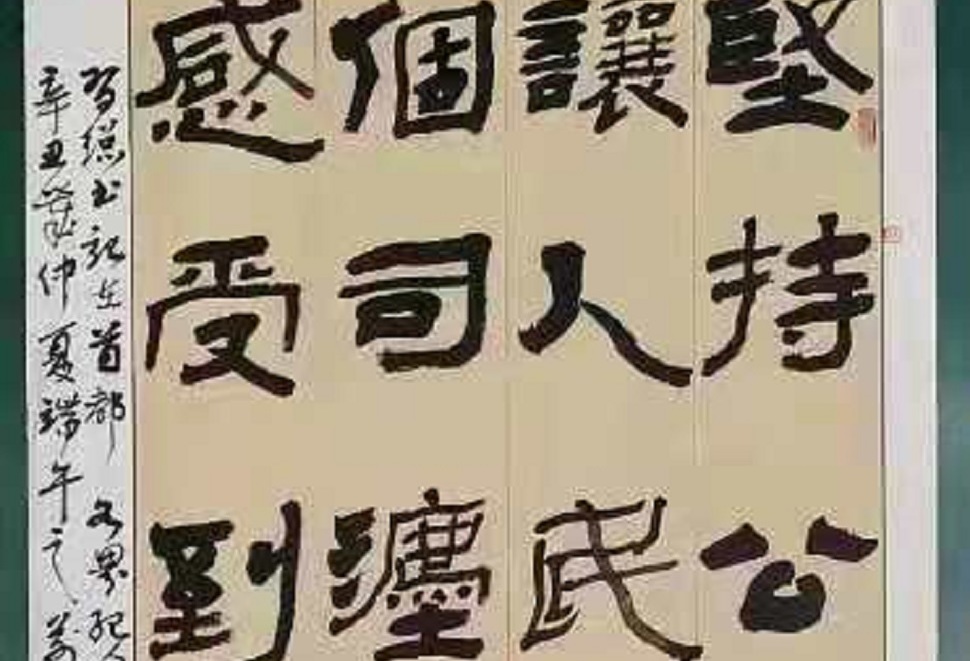 堅持公
讓人民
個司灋
感受到
習總书記在首都各界紀
辛丑歲仲夏端午之